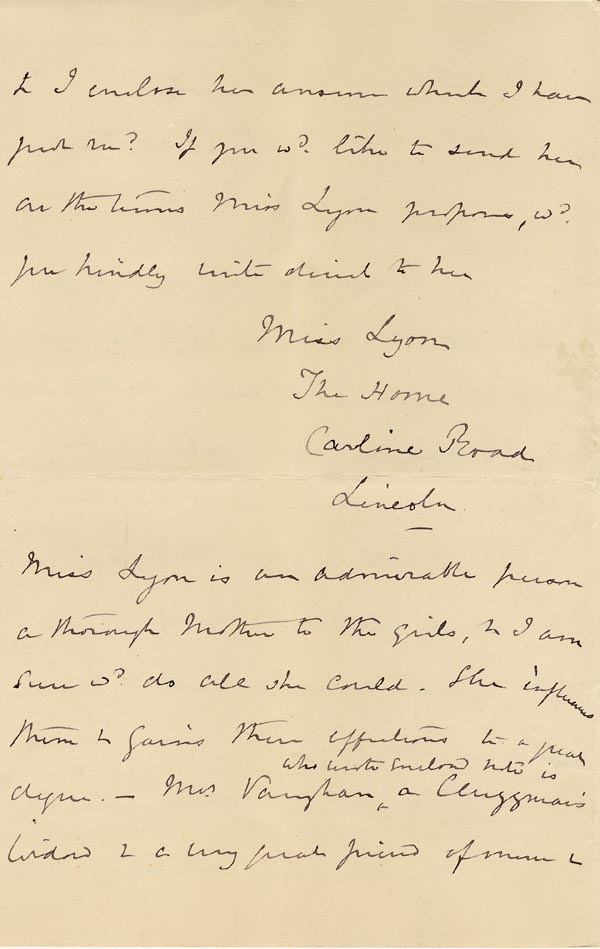 & I enclose her answer which I have
just recd. If you wd. like to send her
on the terms Miss Lyon proposes, wd.
you kindly write direct to her
Miss Lyon
The Home
Carline Road
Lincoln.
Miss Lyon is an admirable person
a thorough Mother to the girls, & I am
sure wd. do all she could. She influences
them & gains their affections to a great
who wrote enclosed note is
degree. — Mrs. Vaughan, a Clergyman's
Widow & a very great friend of mine &